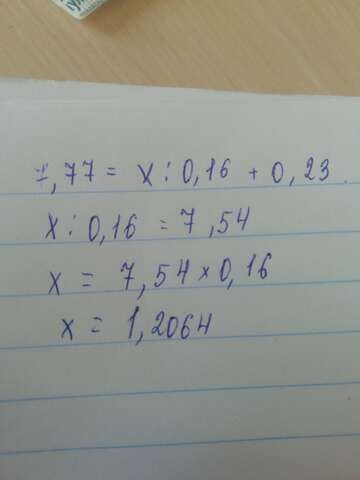 7,77 = x : 0,16 + 0,23
x : 0,16 = 7,54
x = 7,54 × 0,16
x = 1,2064